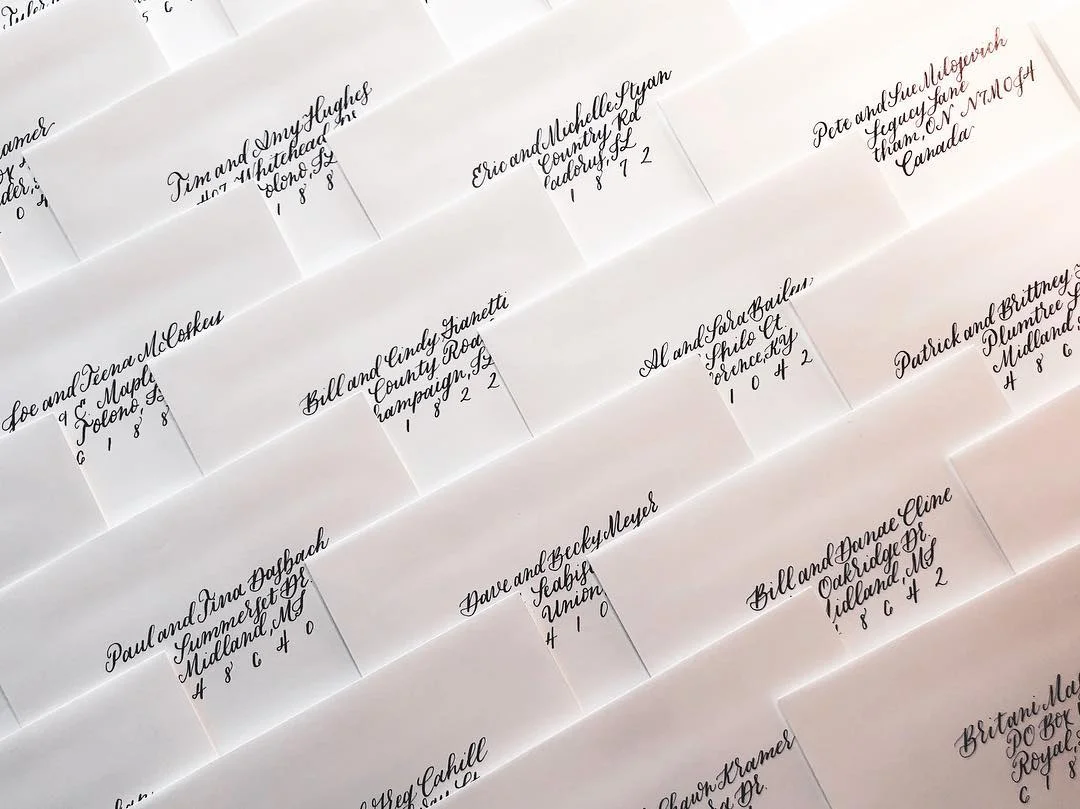 Tim and Amy Hughes
Whitehead
olono, IL
1 8 8
Eric and Michelle Styan
Country Rd
adorus, IL
1 8 7 2
Pete and Sue Milojevich
Legacy Lane
tham, ON N7M 0J4
Canada
Joe and Teena McCoskey
Mapl
Tolono, IL
6 1 8 8
Bill and Cindy Gianetti
County Roa
hampaign, IL
1 8 2 2
Al and Sara Bailey
Philo Ct.
orence, KY
1 0 4 2
Patrick and Brittney
Plumtree
Midland,
4 8 6
Paul and Tina Dasbach
Summerset Dr.
Midland, MI
4 8 6 4 0
Dave and Becky Meyer
Seabis
Union,
4 1 0
Bill and Danae Cline
Oakridge Dr.
idland, MI
8 6 4 2
Greg Cahill
Shawn Kramer
Dr.
Britani Ma
PO Box
Royal,
6 1 8